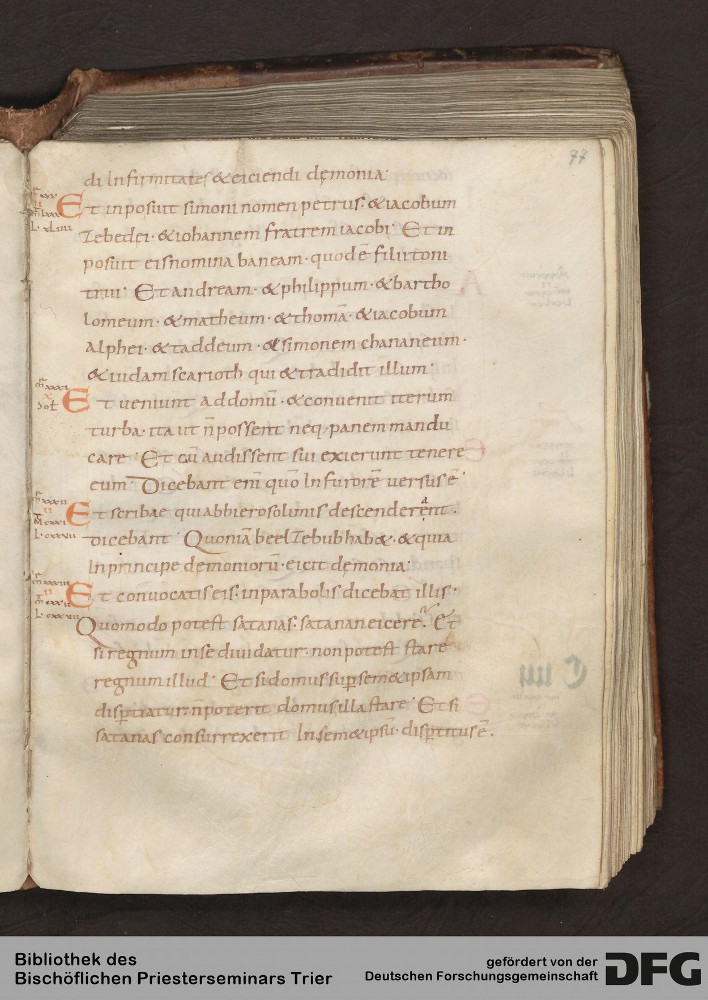 77
di Infirmitates & eiciendi dęmonia·
Et inposuit simoni nomen petrus· & iacobum
Zebedei· & iohannem fratrem iacobi· Et in
posuit eis nomina baneam· quod ē filii toni
trui· Et andream· & philippum· & bartho
lomeum· & matheum· & thomā· & iacobum
alphei· & taddeum· & simonem chananeum·
& iudam scarioth qui & tradidit illum·
Et veniunt ad domū· & convenit iterum
turba· ita ut n̄ possent neq· panem mandu
care· Et cū audissent sui exierunt tenere
eum· Dicebant enī quō In furorē versus ē·
Et scribae qui ab hierosolimis descenderant·
dicebant· Quoniā beelZebub hab&· & quia
In principe demoniorū· eicit dęmonia·
Et convocatis eis· in parabolis dicebat illis·
Quomodo potest satanas· satanan eicere· Et
si regnum in se dividatur· non potest stare
regnum illud· Et si domus super sem&ipsam
dispertiatur· n̄ poterit domus illa stare· Et si
satanas consurrexerit In sem&ipsū· dispertitus ē·
Bibliothek des
Bischöflichen Priesterseminars Trier
gefördert von der
Deutschen Forschungsgemeinschaft
DFG